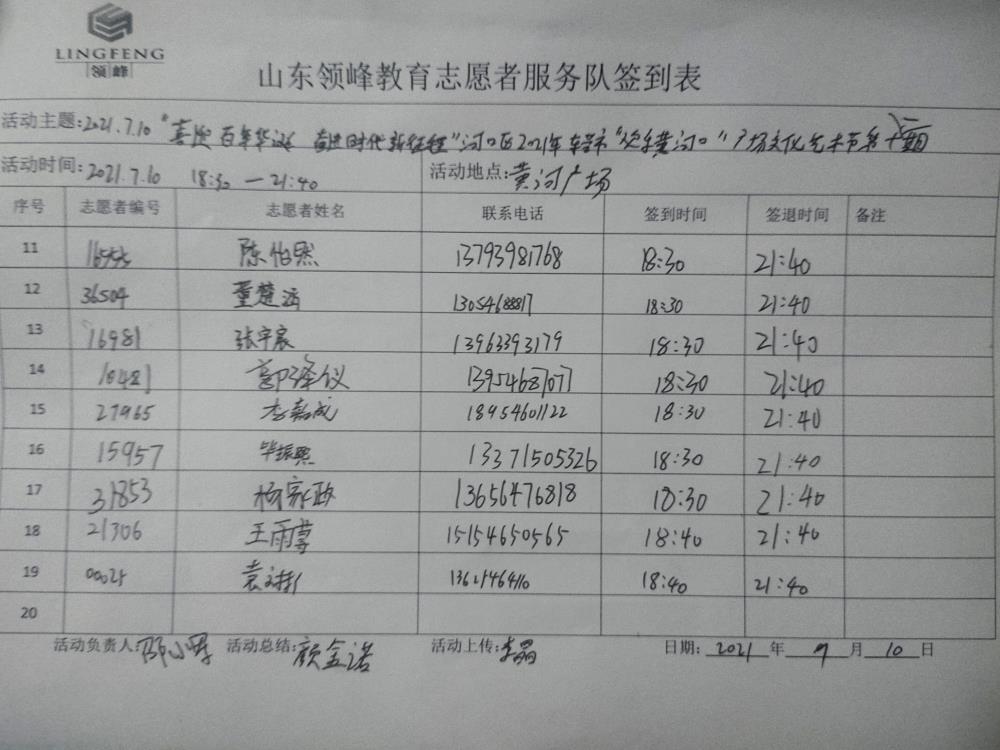 LINGFENG
领峰
山东领峰教育志愿者服务队签到表
活动主题:2021.7.10 "喜迎百年华诞 奋进时代新征程"河口区2021年东营市"欢乐黄河口"广场文化艺术节第十二期
活动时间:2021.7.10 18:30 — 21:40 活动地点:黄河广场
序号 志愿者编号 志愿者姓名 联系电话 签到时间 签退时间 备注
11 陈怡然 13793981768 18:30 21:40
12 36504 董楚涵 13054688817 18:30 21:40
13 16981 张宇宸 13963393179 18:30 21:40
14 10481 郭泽仪 13954687077 18:30 21:40
15 27965 李嘉成 18954601122 18:30 21:40
16 15957 毕振熙 13371505326 18:30 21:40
17 31853 杨家政 13656476818 18:30 21:40
18 21306 王雨萼 15154650565 18:40 21:40
19 袁 18:40 21:40
20
活动负责人: 邵小 活动总结: 颜金诺 活动上传: 李晶 日期: 2021 年 7 月 10 日